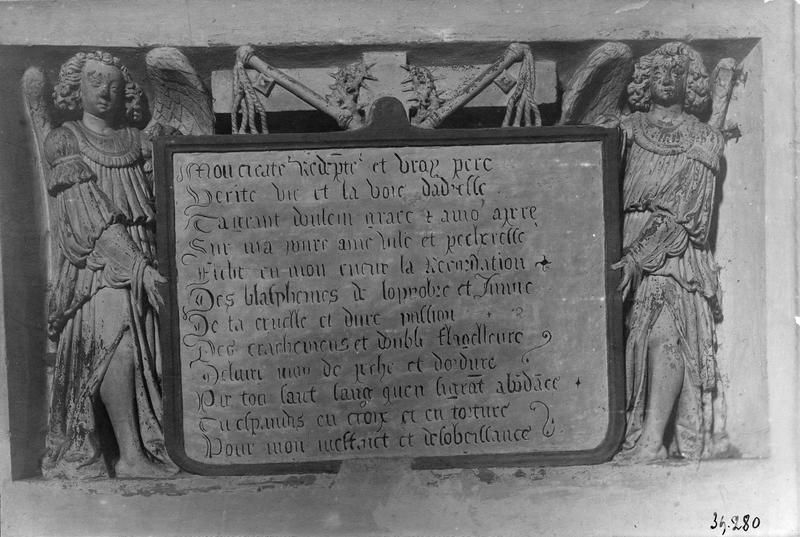 Mon createʳ Redēptʳ et vray pere
Verite vie et la voie dadresse
Ta grant doulceur grace & amoʳ apere
Sur ma povre ame vile et pecheresse
Fiche en mon cueur la Recordation
Des blasphemes de loprobre et Iniure
De ta cruelle et dure passion
Des crachemens et double flagelleure
Delaire moy de peche et dordure
Par ton saint sang quen si grāt abōdāce
Tu espandis en croix et en torture
Pour mon meffaict et desobeissance
39.280